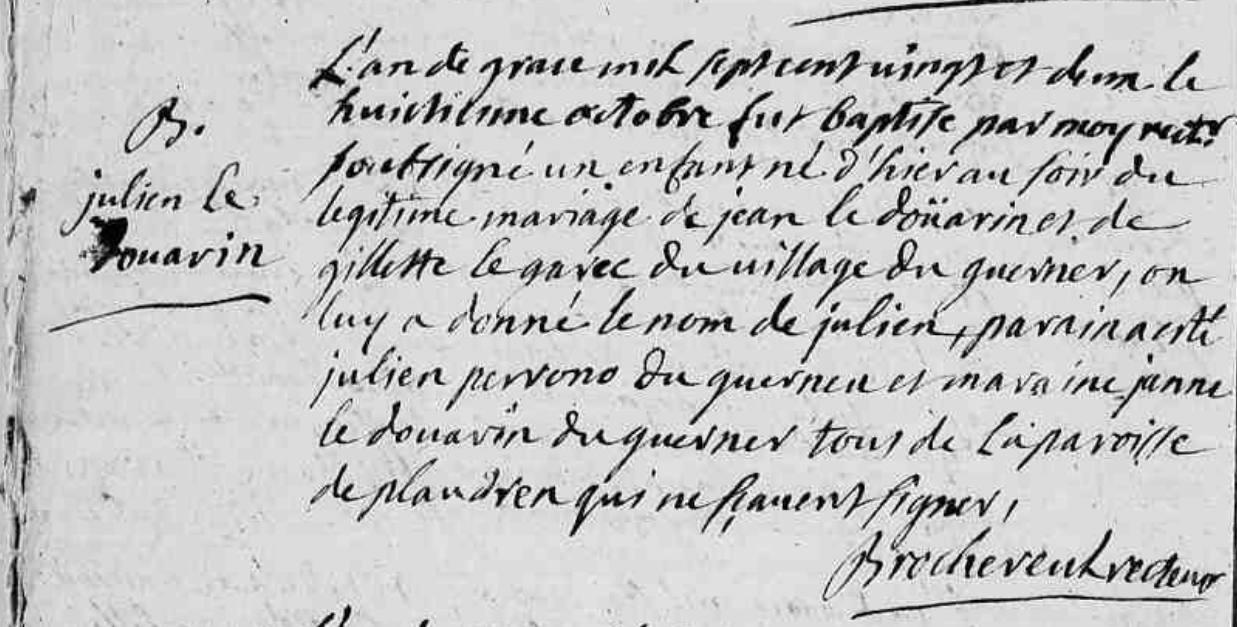 B.
julien le
Douarin
L'an de grace mil sept cent vingt et deux le
huictieme octobre fut baptise par moy rectr
soubsigné un enfant né d'hier au soir du
legitime mariage de jean le doüarin et de
gillette le garec du village du guerner, on
luy a donné le nom de julien, parain a esté
julien perrono du guerneu et maraine janne
le douarin du guerner tous de la paroisse
de plaudren qui ne sçauent signer,
recteur